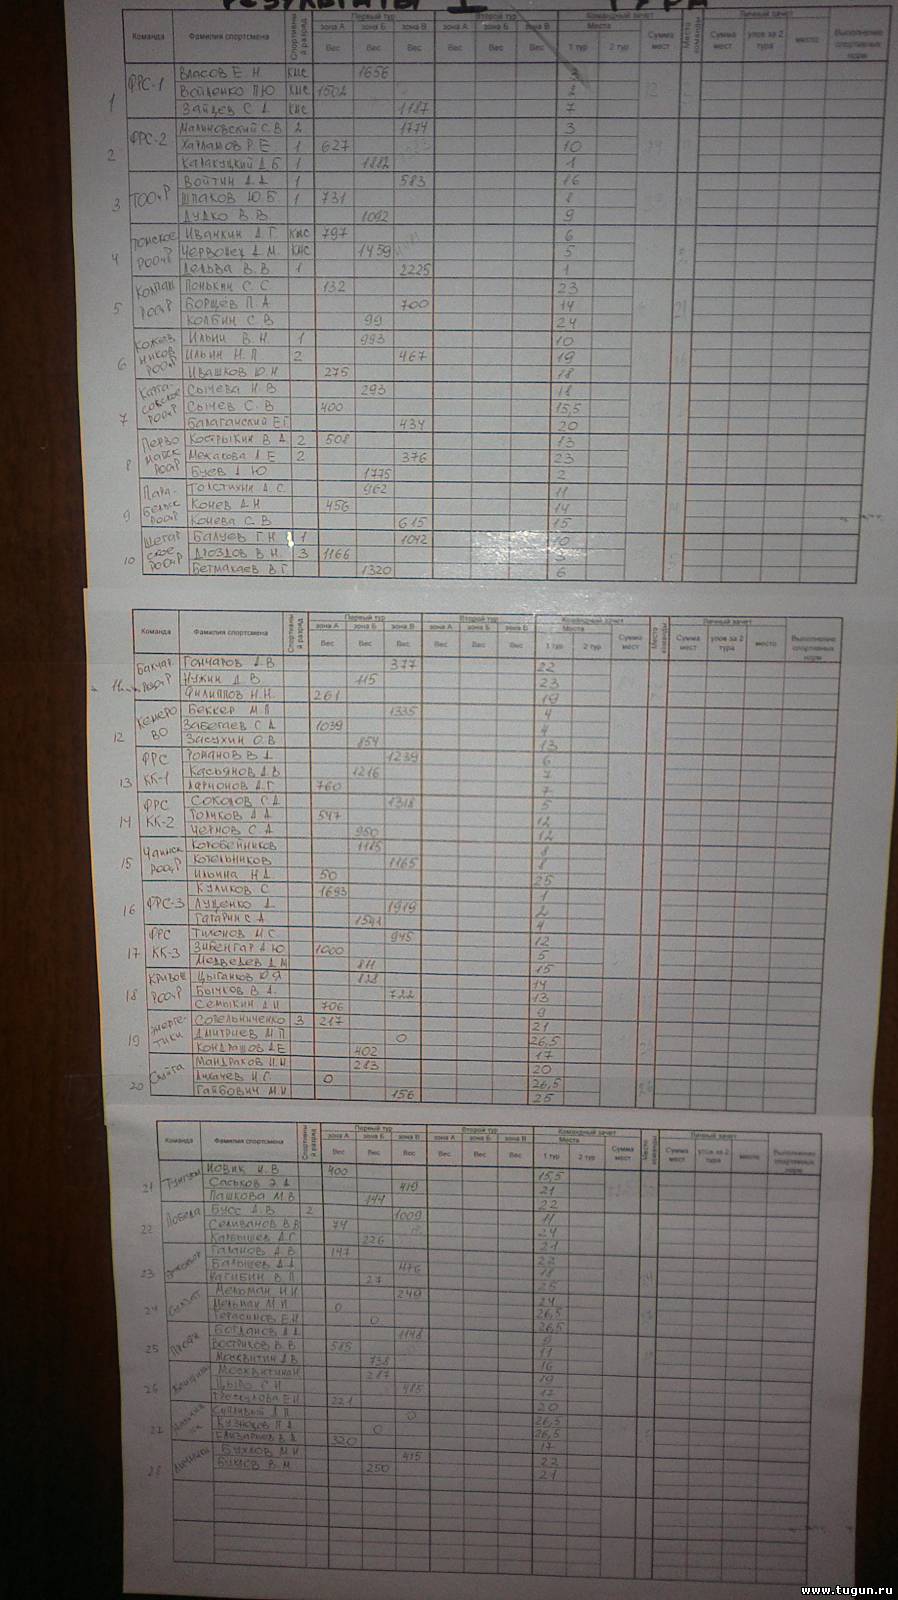 РЕЗУЛЬТАТЫ I ТУРА
Команда Фамилия спортсмена Спортивный разряд Первый тур Второй тур Командный зачет Место команды Личный зачет Выполнение спортивных норм
зона А зона Б зона В зона А зона Б зона В Места Сумма мест Сумма мест улов за 2 тура место
Вес Вес Вес Вес Вес Вес 1 тур 2 тур
1 ФРС-1 Власов Е.Н. кмс 1656 3
Войленко П.Ю кмс 1502 2
Зайцев С.А. кмс 1187 7
2 ФРС-2 Малиновский С.В 2 1774 3
Харламов Р.Е 1 627 10
Калакуцкий Д.Б 1 1882 1
3 ТООиР Войтин А.А. 1 583 16
Шпаков Ю.Б. 1 731 8
Дудко В.В. 1092 9
4 Томское РООиР Иванкин А.Г. кмс 797 6
Червонец Д.М. кмс 1459 5
Дельва В.В. 1 2225 1
5 РООиР Понькин С.С. 132 23
Борщев П.А 700 14
Колбин С.В 99 24
6 Кожевников РООиР Ильин В.Н. 1 993 10
Ильин Н.П 2 467 19
Ивашков Ю.Н 275 18
7 РООиР Сычева Н.В 293 18
Сычев С.В 400 15,5
Балаганский Е.Г 434 20
8 Первомайск РООиР Кострыкин В.А 2 508 13
Мекасова Л.Е 2 376 23
Буев А.Ю 1775 2
9 Парабельск РООиР Толстихин А.С. 962 11
Конев А.Н 456 14
Конева С.В 615 15
10 Шегарское РООиР Балуев Г.Н. 1 1042 10
Дроздов В.Н. 3 1166 3
Бетмакаев В.Г 1320 6
Команда Фамилия спортсмена Спортивный разряд Первый тур Второй тур Командный зачет Место команды Личный зачет Выполнение спортивных норм
зона А зона Б зона В зона А зона Б зона В Места Сумма мест Сумма мест улов за 2 тура место
Вес Вес Вес Вес Вес Вес 1 тур 2 тур
11 Бакчар РООиР Гончаров А.В 377 22
Нужин Д.В 115 23
Филиппов Н.Н. 261 19
12 Кемерово Беккер М.П 1335 4
Забегаев С.А 1039 4
Засухин О.В 854 13
13 ФРС КК-1 Романов В.А 1239 6
Касьянов А.В 1216 7
Ларионов А.Г 760 7
14 ФРС КК-2 Соколов С.А 1318 5
Толиков А.А 547 12
Чернов С.А 950 12
15 Чаинск РООиР Коробейников 1185 8
Котельников 1165 8
Ильина Н.А 50 25
16 ФРС-3 Куликов С 1693 1
Луценко А 1919 2
Гагарин С.А 1541 4
17 ФРС КК-3 Тихонов М.С. 945 12
Зибенгар А.Ю 1000 5
Медведев Д.М 811 15
18 РООиР Цыганков Ю.Я 14
Бычков В.А. 722 13
Семыкин А.И 706 9
19 Энергетики Сотельниченко 3 217 21
Дмитриев М.П 0 26,5
Кондрашов А.Е 402 17
20 Слуга Мандраков И.И 283 20
Лихачев И.С. 0 26,5
Гайбович М.И 156 25
Команда Фамилия спортсмена Спортивный разряд Первый тур Второй тур Командный зачет Место команды Личный зачет Выполнение спортивных норм
зона А зона Б зона В зона А зона Б зона В Места Сумма мест Сумма мест улов за 2 тура место
Вес Вес Вес Вес Вес Вес 1 тур 2 тур
21 Тунгусы Новик И.В 400 15,5
Саськов Э.А 419 21
Пашкова М.В 144 22
22 Победа Бусс А.В 2 1009 11
Селиванов В.В 74 24
Карбышев А.С 226 21
23 Галанов А.В. 147 22
Балышев А.А 476 18
Рагибин В.П 27 25
24 Мельман И.И 249 24
Мельман М.И 0 26,5
Герасимов Е.Н 0 26,5
25 Богданов А.А 1148 9
Востриков В.В 585 11
Москвитин А.В 738 16
26 Москвитина Н 287 19
Цыро С.Н 485 17
Проскурова Е.Н 221 20
27 0 26,5
Кузнецов П.А 0 26,5
Елизарьев В.А 320 17
28 Бухлов М.И 415 22
Бикаев В.М 250 21
www.tugun.ru